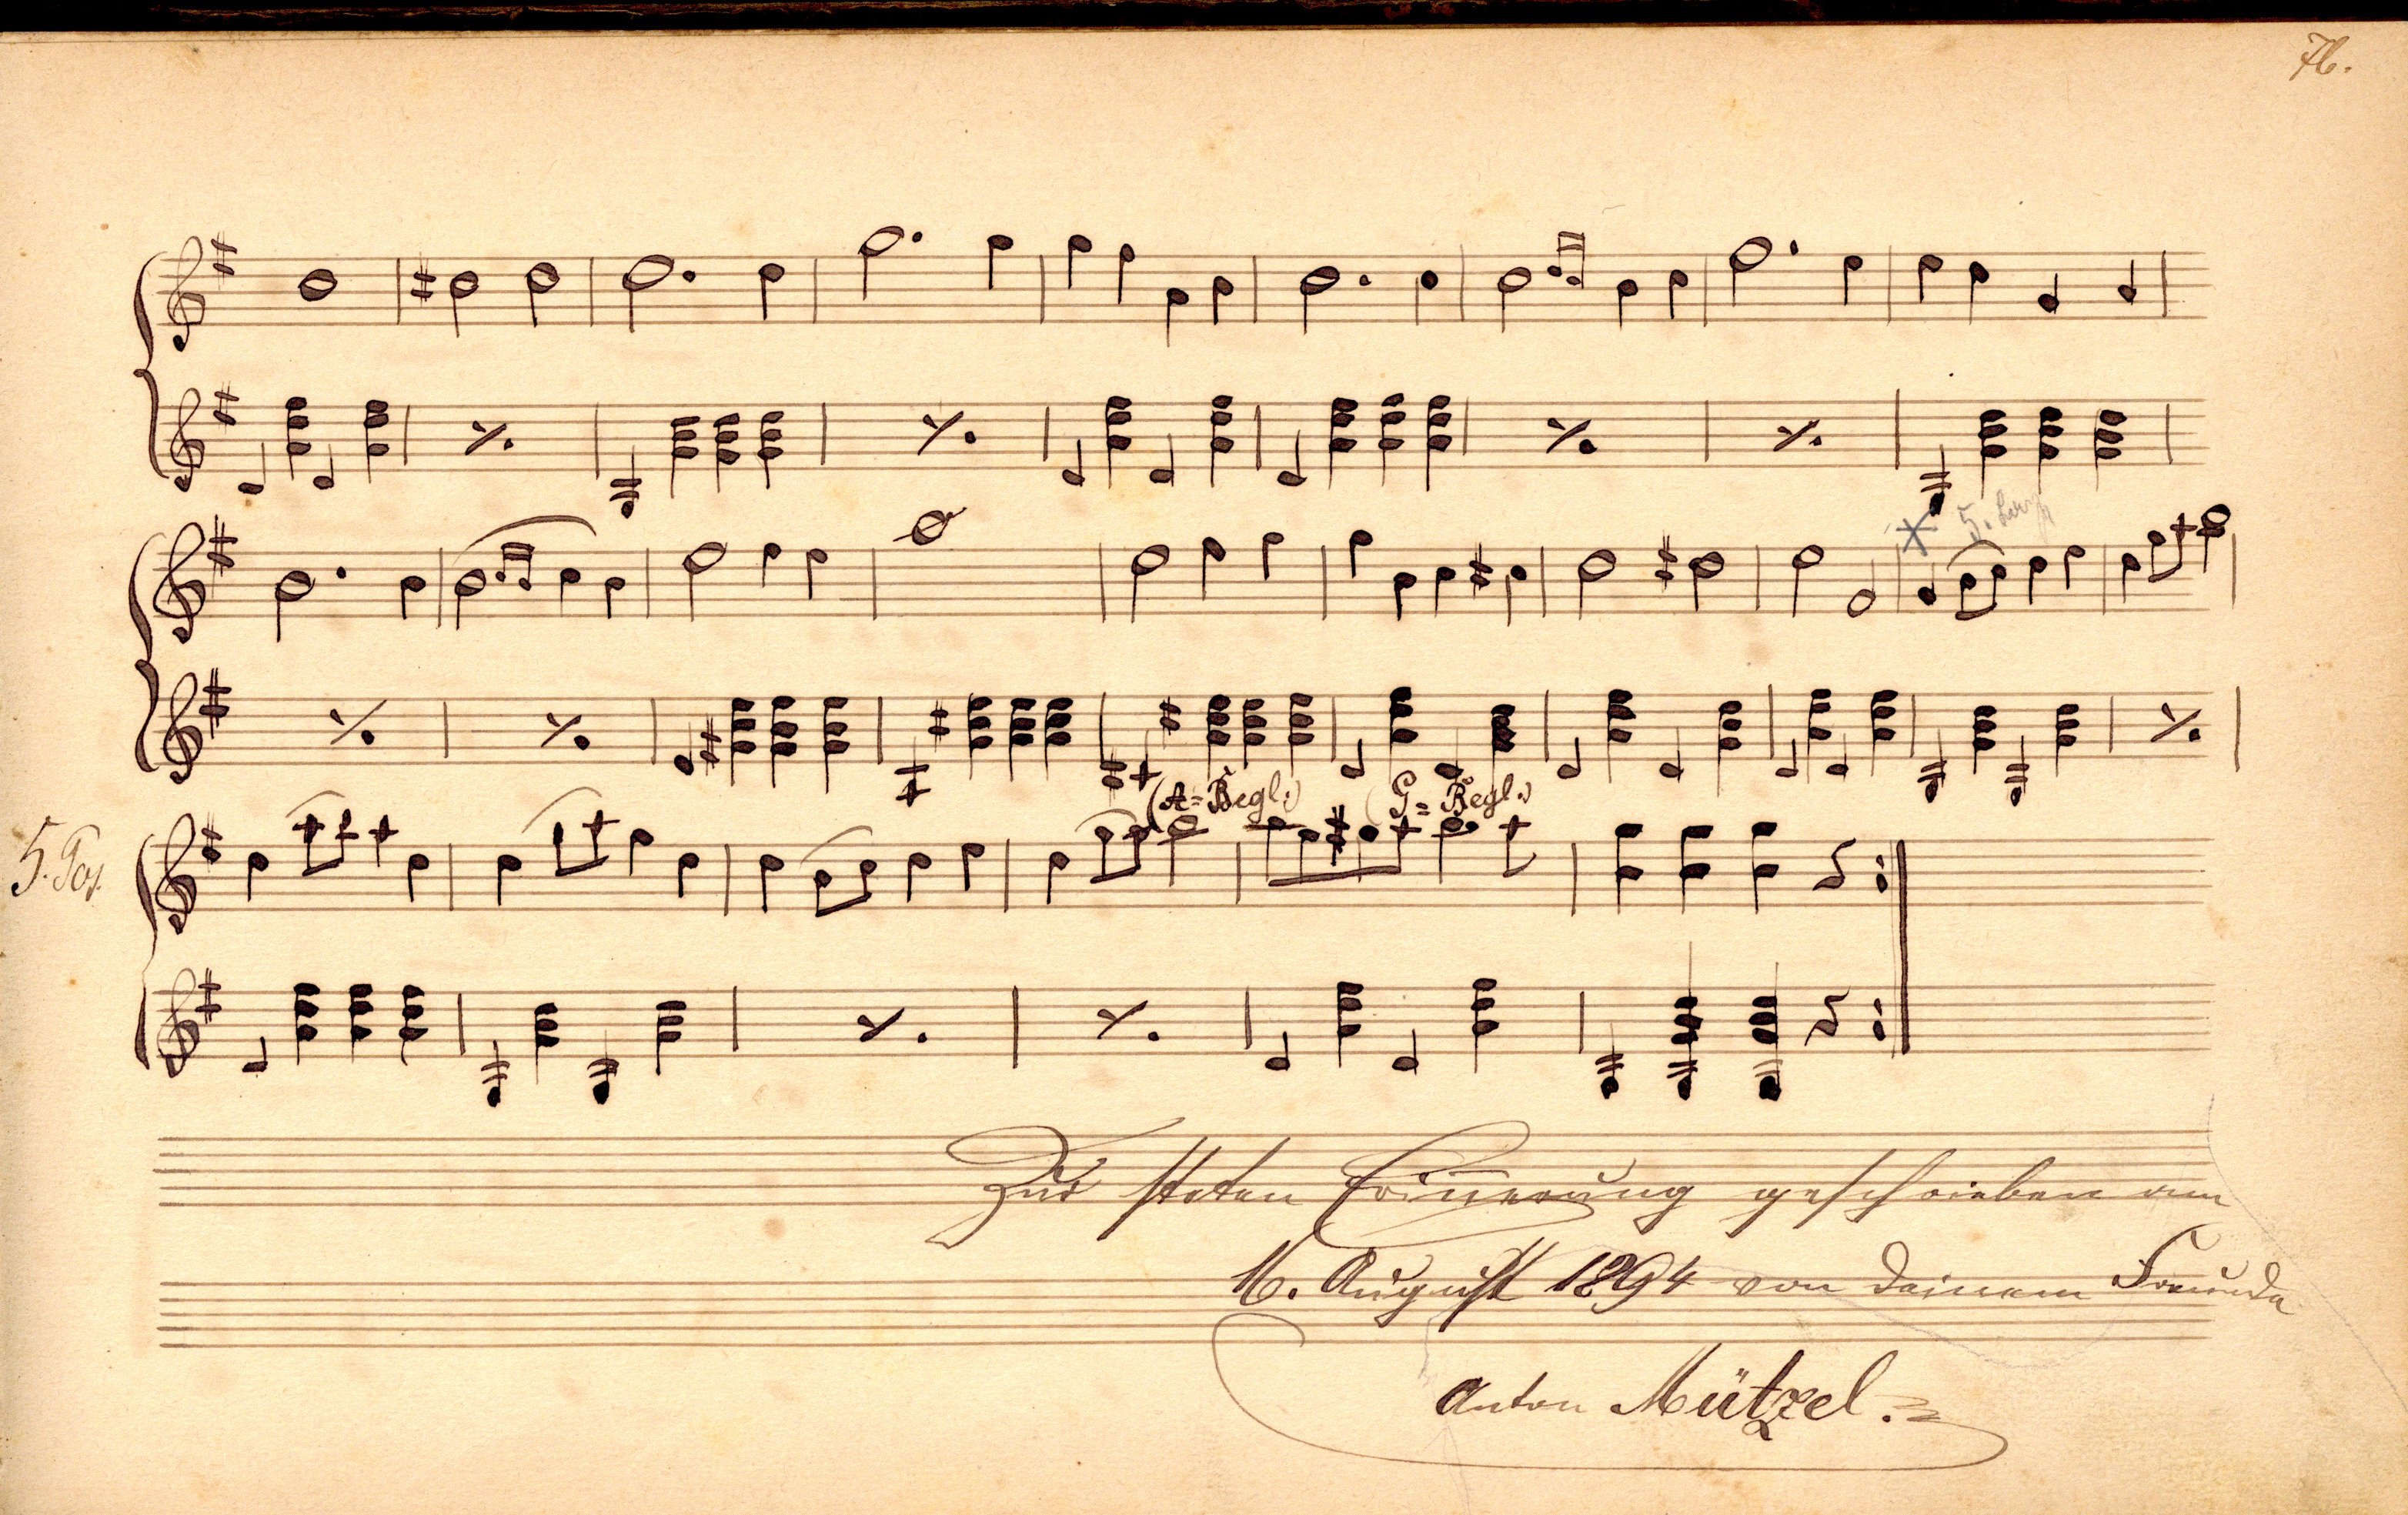 76.
5. Lage
(A = Begl.) (G = Begl.)
5. Pos.
Zur steten Erinnerung geschrieben am
16. August 1894 von deinem Freunde
Anton Mützel.